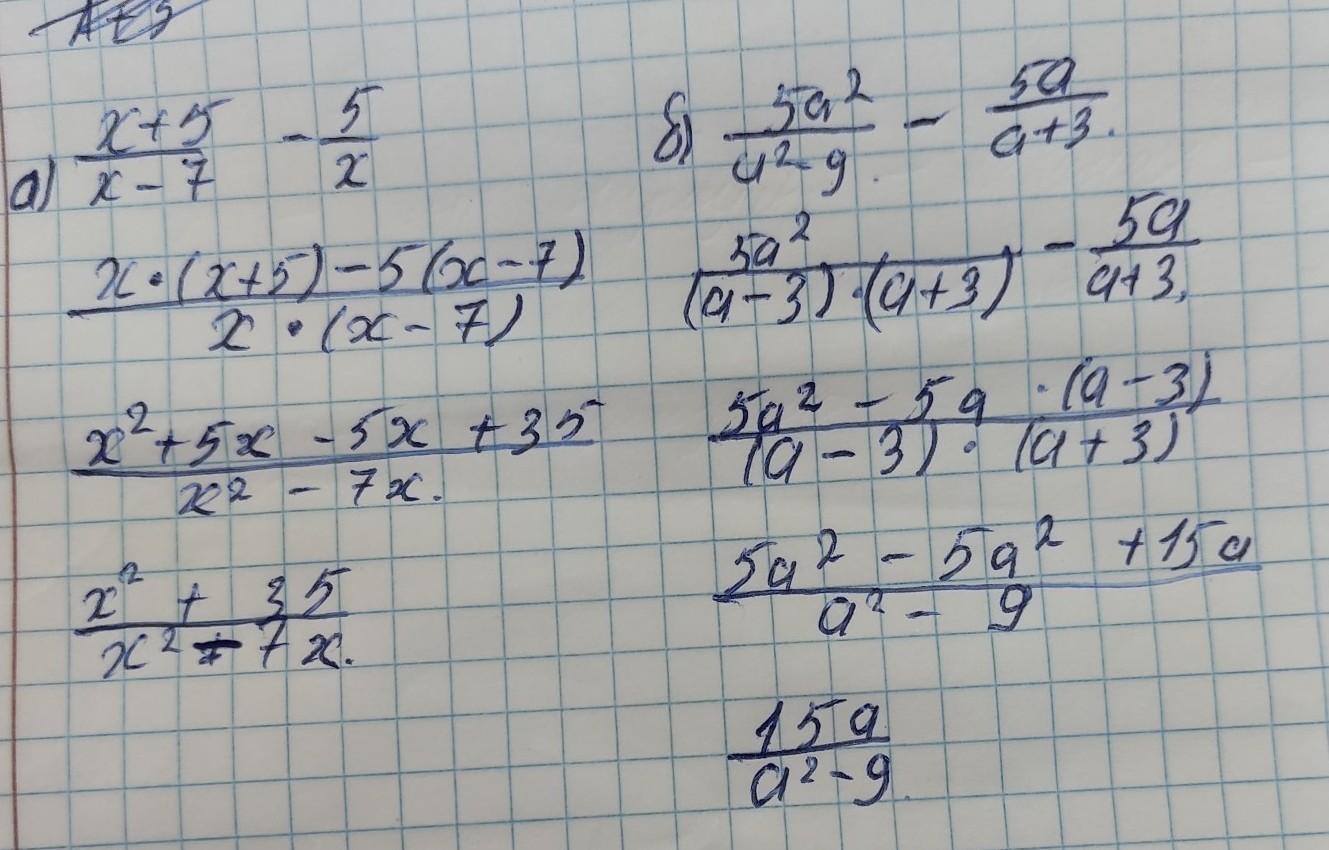 а) (x+5)/(x-7) - 5/x
(x·(x+5)-5(x-7))/(x·(x-7))
(x²+5x-5x+35)/(x²-7x).
(x²+35)/(x²-7x).
б) 5a²/(a²-9). - 5a/(a+3).
5a²/((a-3)·(a+3)) - 5a/(a+3).
(5a²-5a·(a-3))/((a-3)·(a+3))
(5a²-5a²+15a)/(a²-9)
15a/(a²-9).